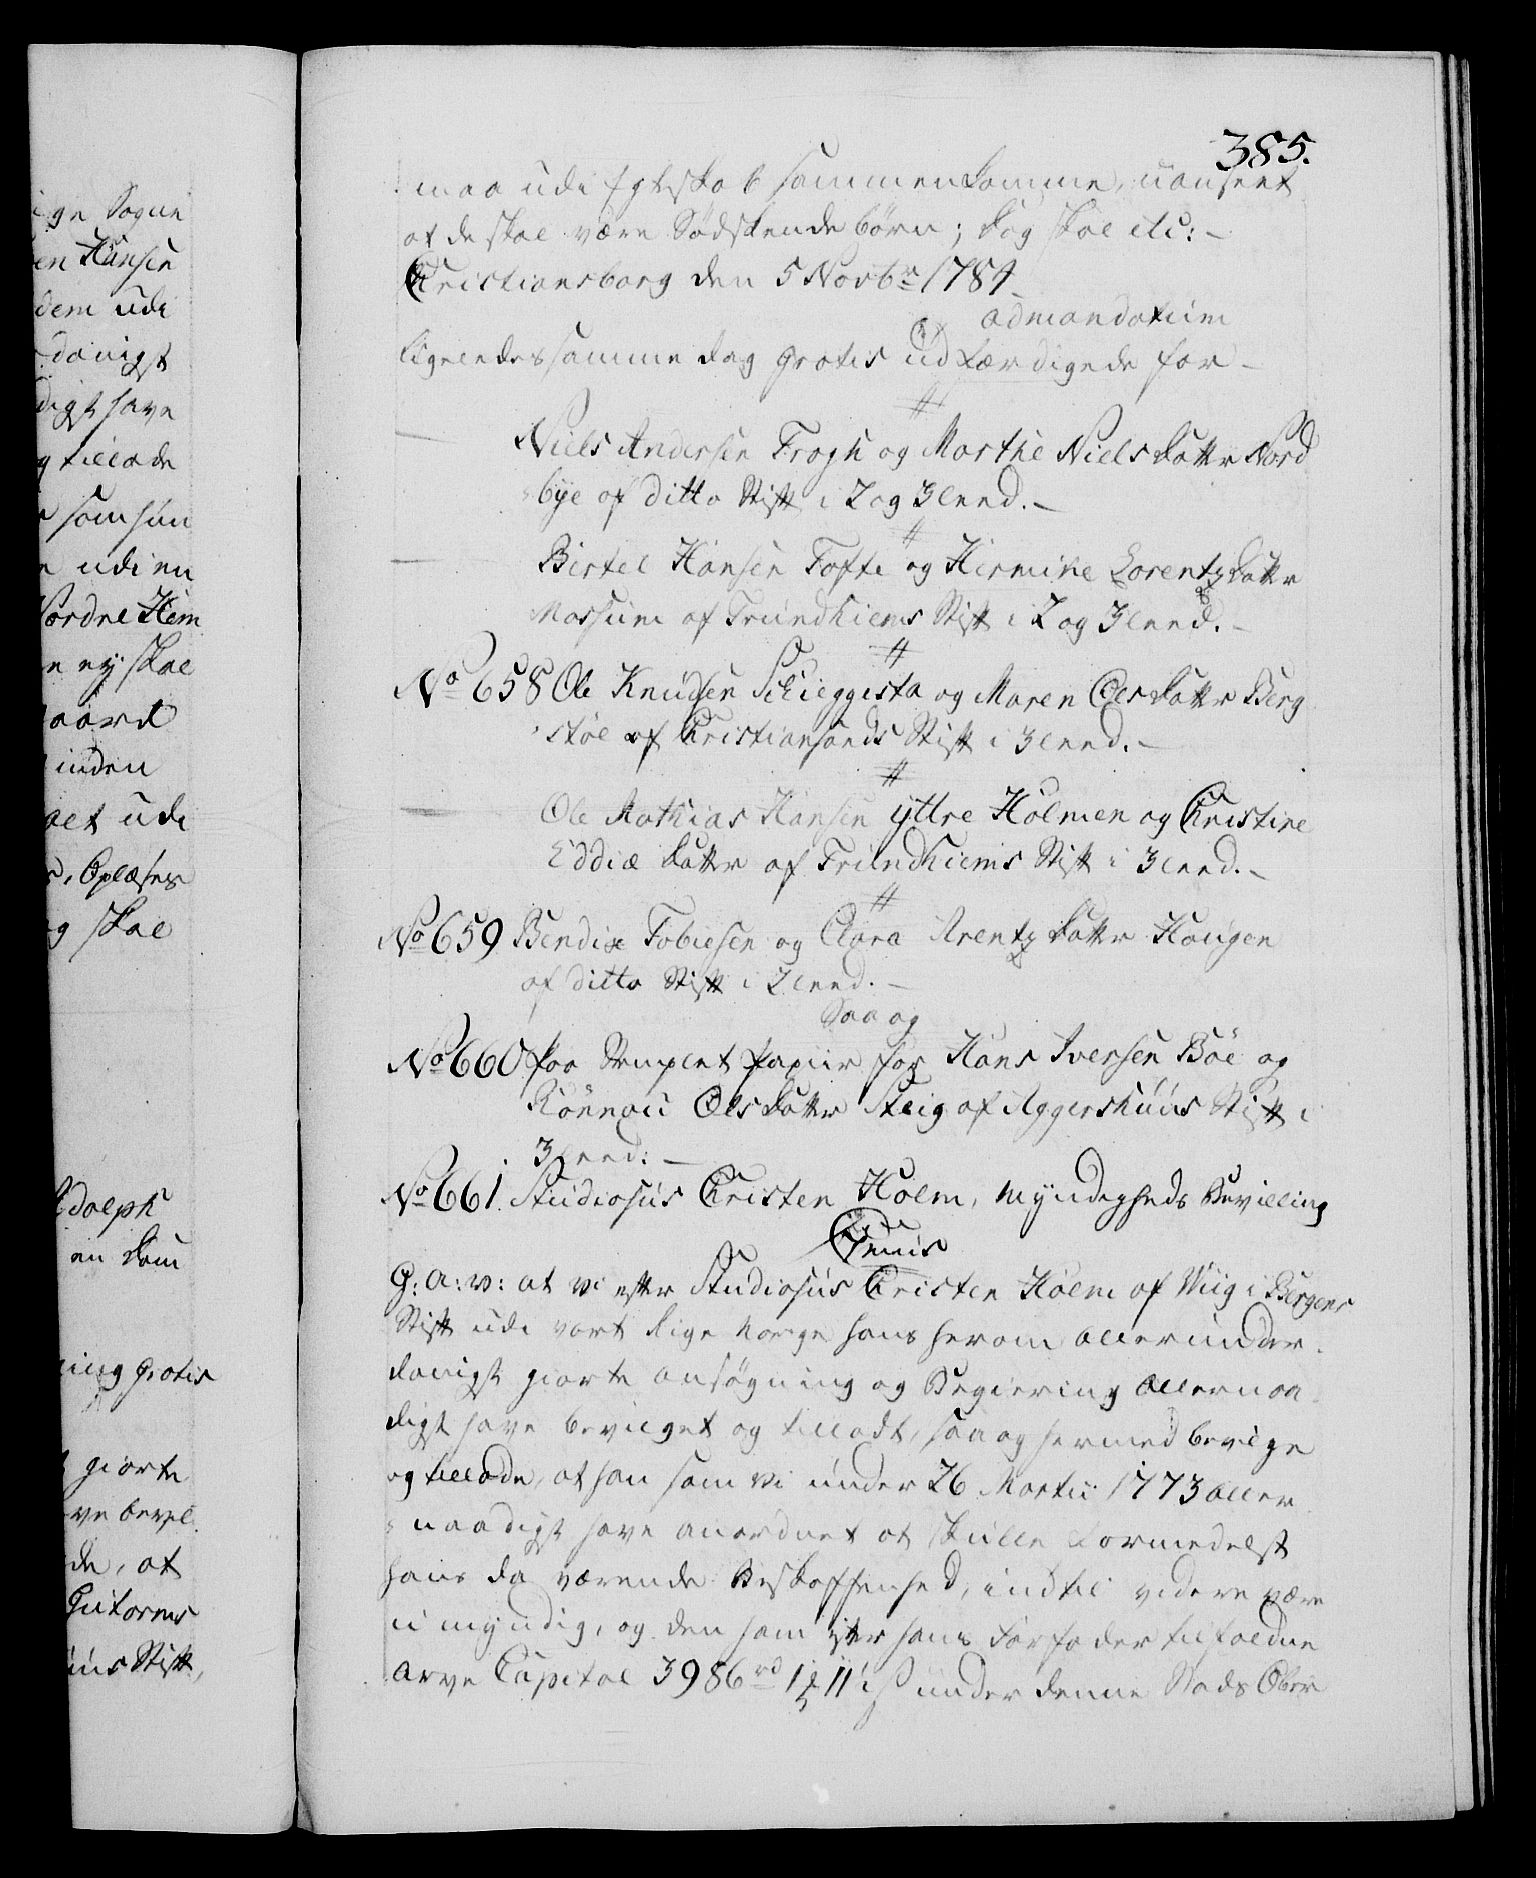 385.
maa udi Egteskab sammenkomme, uanseet
at de skal være Södskendebörn; dog skal etc:
Christiansborg den 5 Novbr 1784
ad mandatum
ligeledes samme dag gratis udfærdigede for
#
Niels Andersen Trogh og Marthe Niels datter Nord
bye af ditto Stift i 2 og 3 leed.
#
Birtel Hansen Tofte og Hirmine Lorentz datter
Mossum af Trundhiems Stift i 2 og 3 leed.
#
No 658 Ole Knudsen Schieggesta og Maren Olsdatter Berg
støl af Christiansands Stift i 3 leed.
#
Ole Mathias Hansen yttre Holmen og Christine
Eddiæ datter af Trundhiems Stift i 3 leed.
#
No 659 Bendix Tobiesen og Clara Arentz datter Haugen
af ditto Stift i 2 leed.
Saa og
No 660 paa Stemplet Papiir for Hans Iversen Böe og
Rönnau Olsdatter Steig af Aggershuus Stift i
3 leed:
No 661. Studiosus Christen Holm, Myndigheds Bevilling
G: A: v: at vi efter Studiosus Christen Holm af Wiig i Bergens
Stift udi vort Rige Norge hans herom allerunder
danigst giorte ansøgning og Begiering allernaa
digst have bevilget og tilladt, saa og hermed bevilge
og tillade, at han som vi under 26 Martii 1773 aller
naadigst have anordnet at skulle formedelst
hans da værende Beskaffenhed, indtil videre være
umyndig, og den ham efter hans Farfader tilfaldne
Arve Capital 3986 rd 1 11 s under denne Stads Ober
ige Sogne
en Hansen
dem udi
danigst
digst have
g tillade
som hun
udi en
Nordre Hem
ey skal
aard
inden
aet udi
Oplæses
g skal
Adolph
en dom
ning gratis
giorte
ve bevil
de, at
Gutorms
uus Stift,